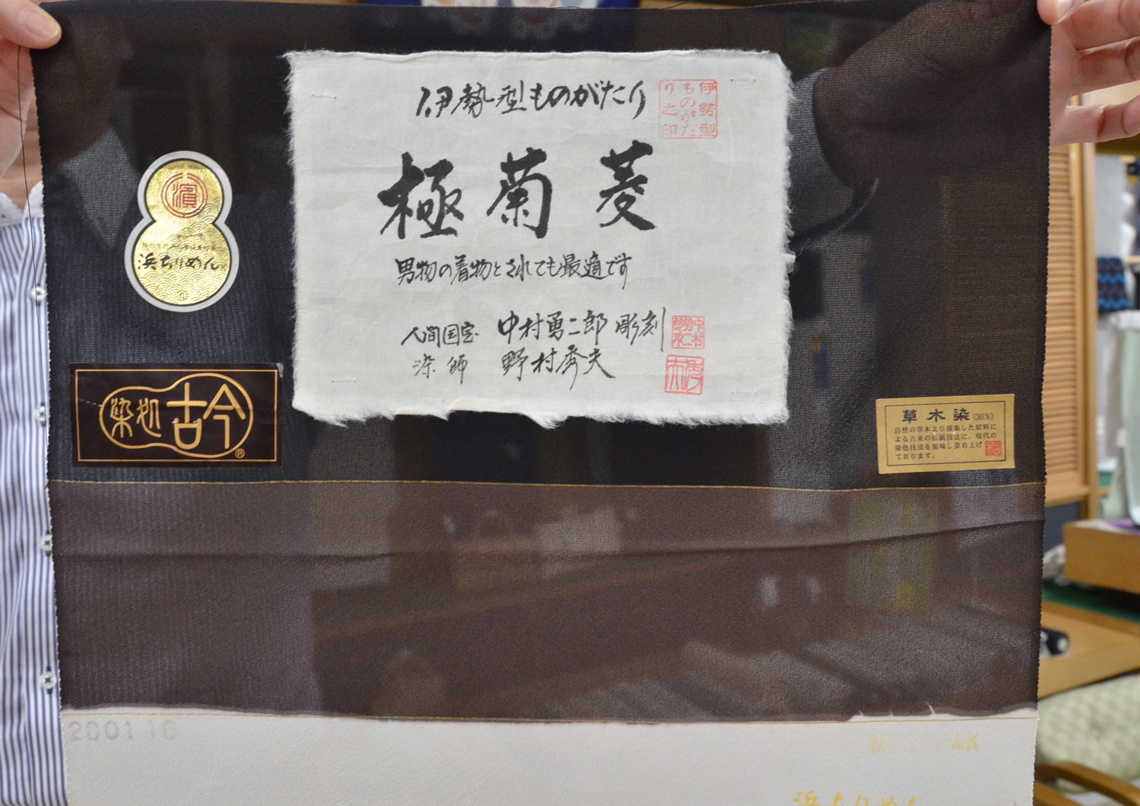 伊勢型ものがたり
伊勢型
ものがた
り之印
極菊菱
男物の着物とされても最適です
人間国宝 中村勇二郎 彫刻
染師 野村秀夫
濱
浜ちりめん
染処 古今
®
草木染(30%)
自然の草木より採集した原料に
よる古来の伝統技法に、現代の
染色技法を加味し染め上げ
ております。
200116
浜ちりめん